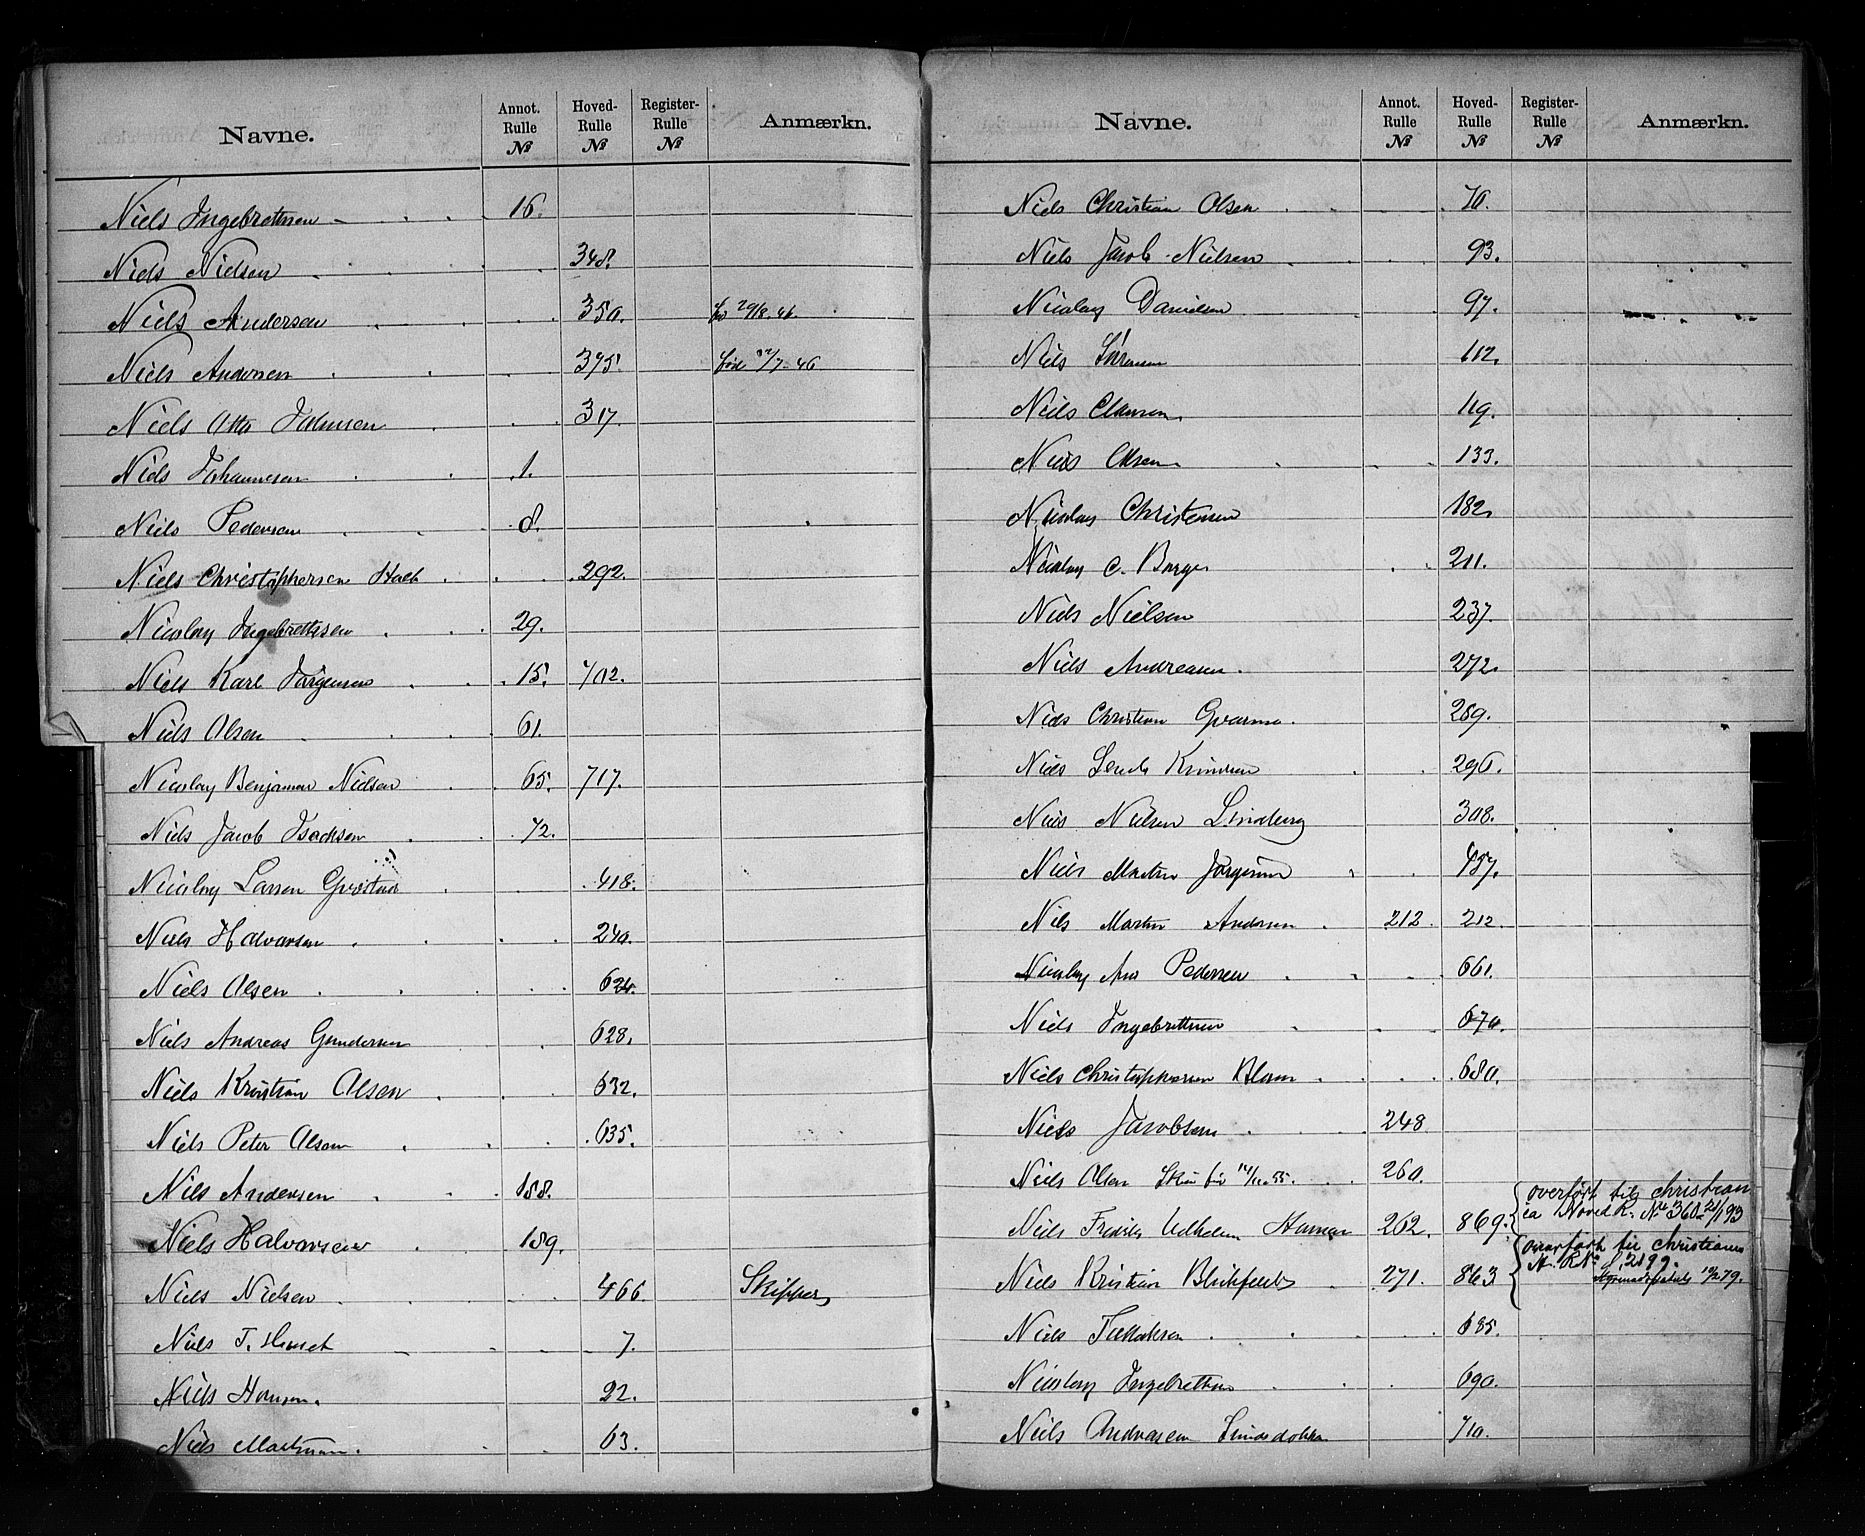 Navne. Annot. Rulle № Hoved- Rulle № Register- Rulle № Anmærkn.
Niels Ingebretsen 16.
Niels Nielsen 348.
Niels Andersen 350. 29/8 46.
Niels Andersen 375. født 12/7 46
Niels Otto Johnsen 317.
Niels Johannesen 1.
Niels Pedersen 8.
Niels Christophersen Holt 292.
Nicolay Ingebretsen 29.
Niels Karl Jørgensen 15. 702.
Niels Olsen 61.
Nicolay Benjamin Nielsen 65. 717.
Niels Jacob Isachsen 72.
Nicolay Larsen 418.
Niels Halvorsen 240.
Niels Olsen 624.
Niels Andreas Gundersen 628.
Niels Kristian Olsen 632.
Niels Peter Olsen 635.
Niels Andersen 158.
Niels Halvorsen 159.
Niels Nielsen 466. Skipper
Niels T. 7.
Niels Hansen. 22.
Niels 63.
Navne. Annot. Rulle № Hoved- Rulle № Register- Rulle № Anmærkn.
Niels Christian Olsen 70.
Niels Jacob Nielsen 93.
Nicolay Danielsen 97.
Niels Sørensen 112.
Niels Clausen 119.
Niels Olsen 133.
Nicolay Christensen 182.
Nicolay C. Borge 211.
Niels Nielsen 237.
Niels Andreasen 272.
Niels Christian 289.
Niels 296.
Niels Nielsen Lindberg 308.
Niels Martin Jørgensen 457.
Niels Martin Andersen 212. 212.
Nicolay And Pedersen 661.
Niels Ingebretsen 670.
Niels Christophersen Blom 680.
Niels Jacobsen 248
Niels Olsen 14/11 55. 260.
overført til Christian
Niels Fredrik Vilhelm Hansen 262. 869. ia Hoved R. No 360 21/1 93
overført til Christiania
Niels Kristian Blichfeldt 271. 863 A. R No 2199. 12/2 79.
Niels 685.
Nicolay Ingebretsen 690.
Niels Andreasen 710.